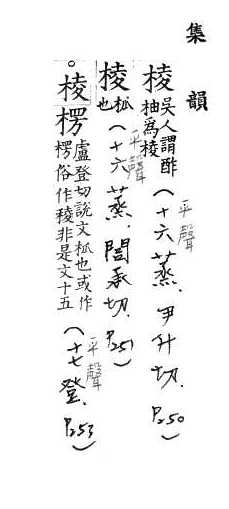 集韻
棱 吳人謂酢
柚爲棱
平聲
(十六蒸. 尹升切. P250)
棱 柧
也
平聲
(十六蒸. 閭承切. P251)
。棱楞 盧登切說文柧也或作
楞俗作稜非是文十五
平聲
(十七登. P253)